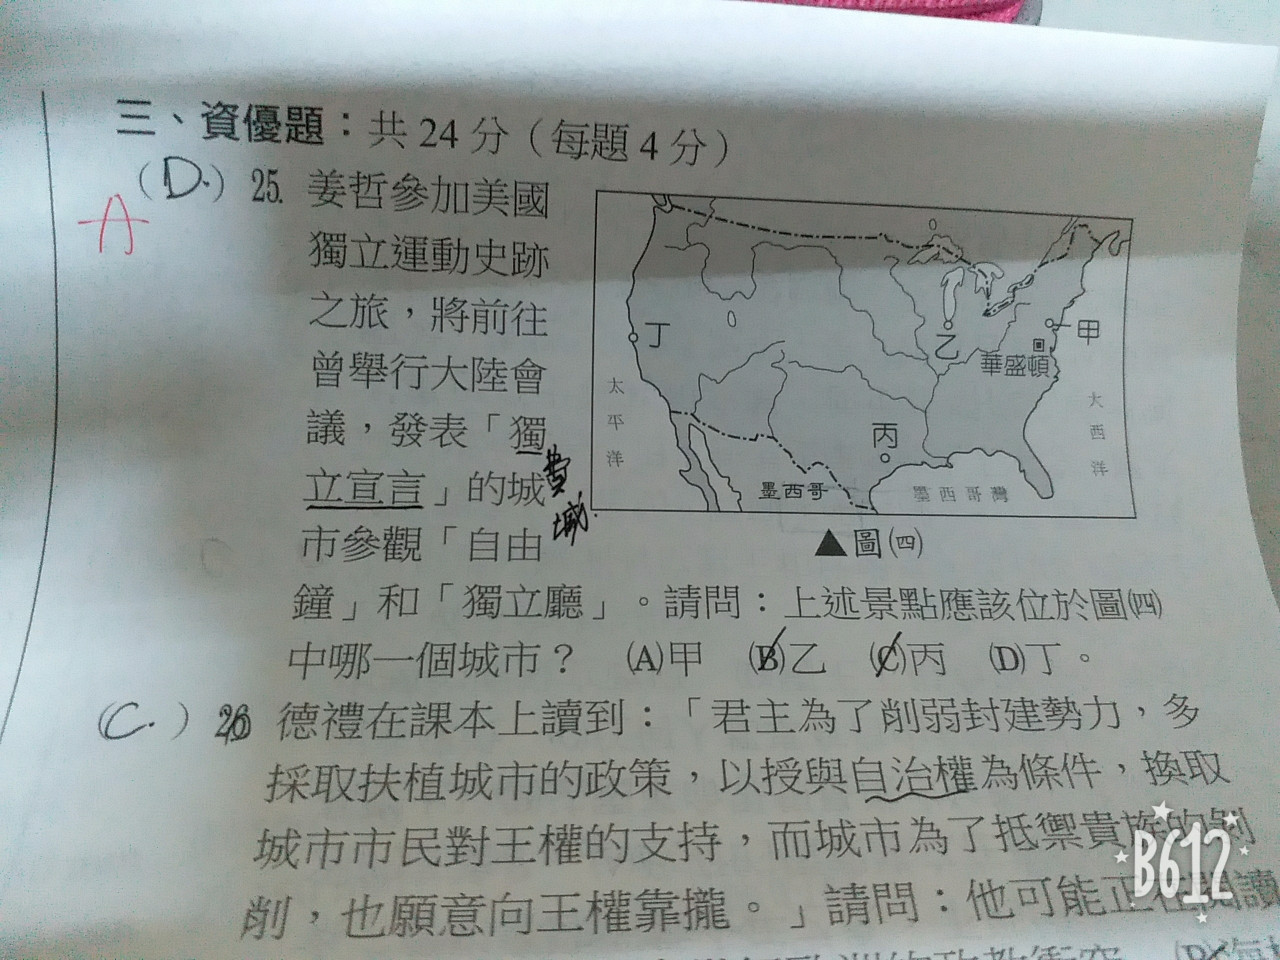 三、資優題：共24分（每題4分）
（D.）25. 姜哲參加美國
A
獨立運動史跡
之旅，將前往
曾舉行大陸會
議，發表「獨
立宣言」的城
費城
市參觀「自由
鐘」和「獨立廳」。請問：上述景點應該位於圖㈣
中哪一個城市？ (A)甲 (B)乙 (C)丙 (D)丁。
丁
乙
甲
華盛頓
丙
太平洋
大西洋
墨西哥
墨西哥灣
▲圖㈣
（C.）26 德禮在課本上讀到：「君主為了削弱封建勢力，多
採取扶植城市的政策，以授與自治權為條件，換取
城市市民對王權的支持，而城市為了抵禦貴族的剝
削，也願意向王權靠攏。」請問：他可能正在閱讀
的政教衝突
B612